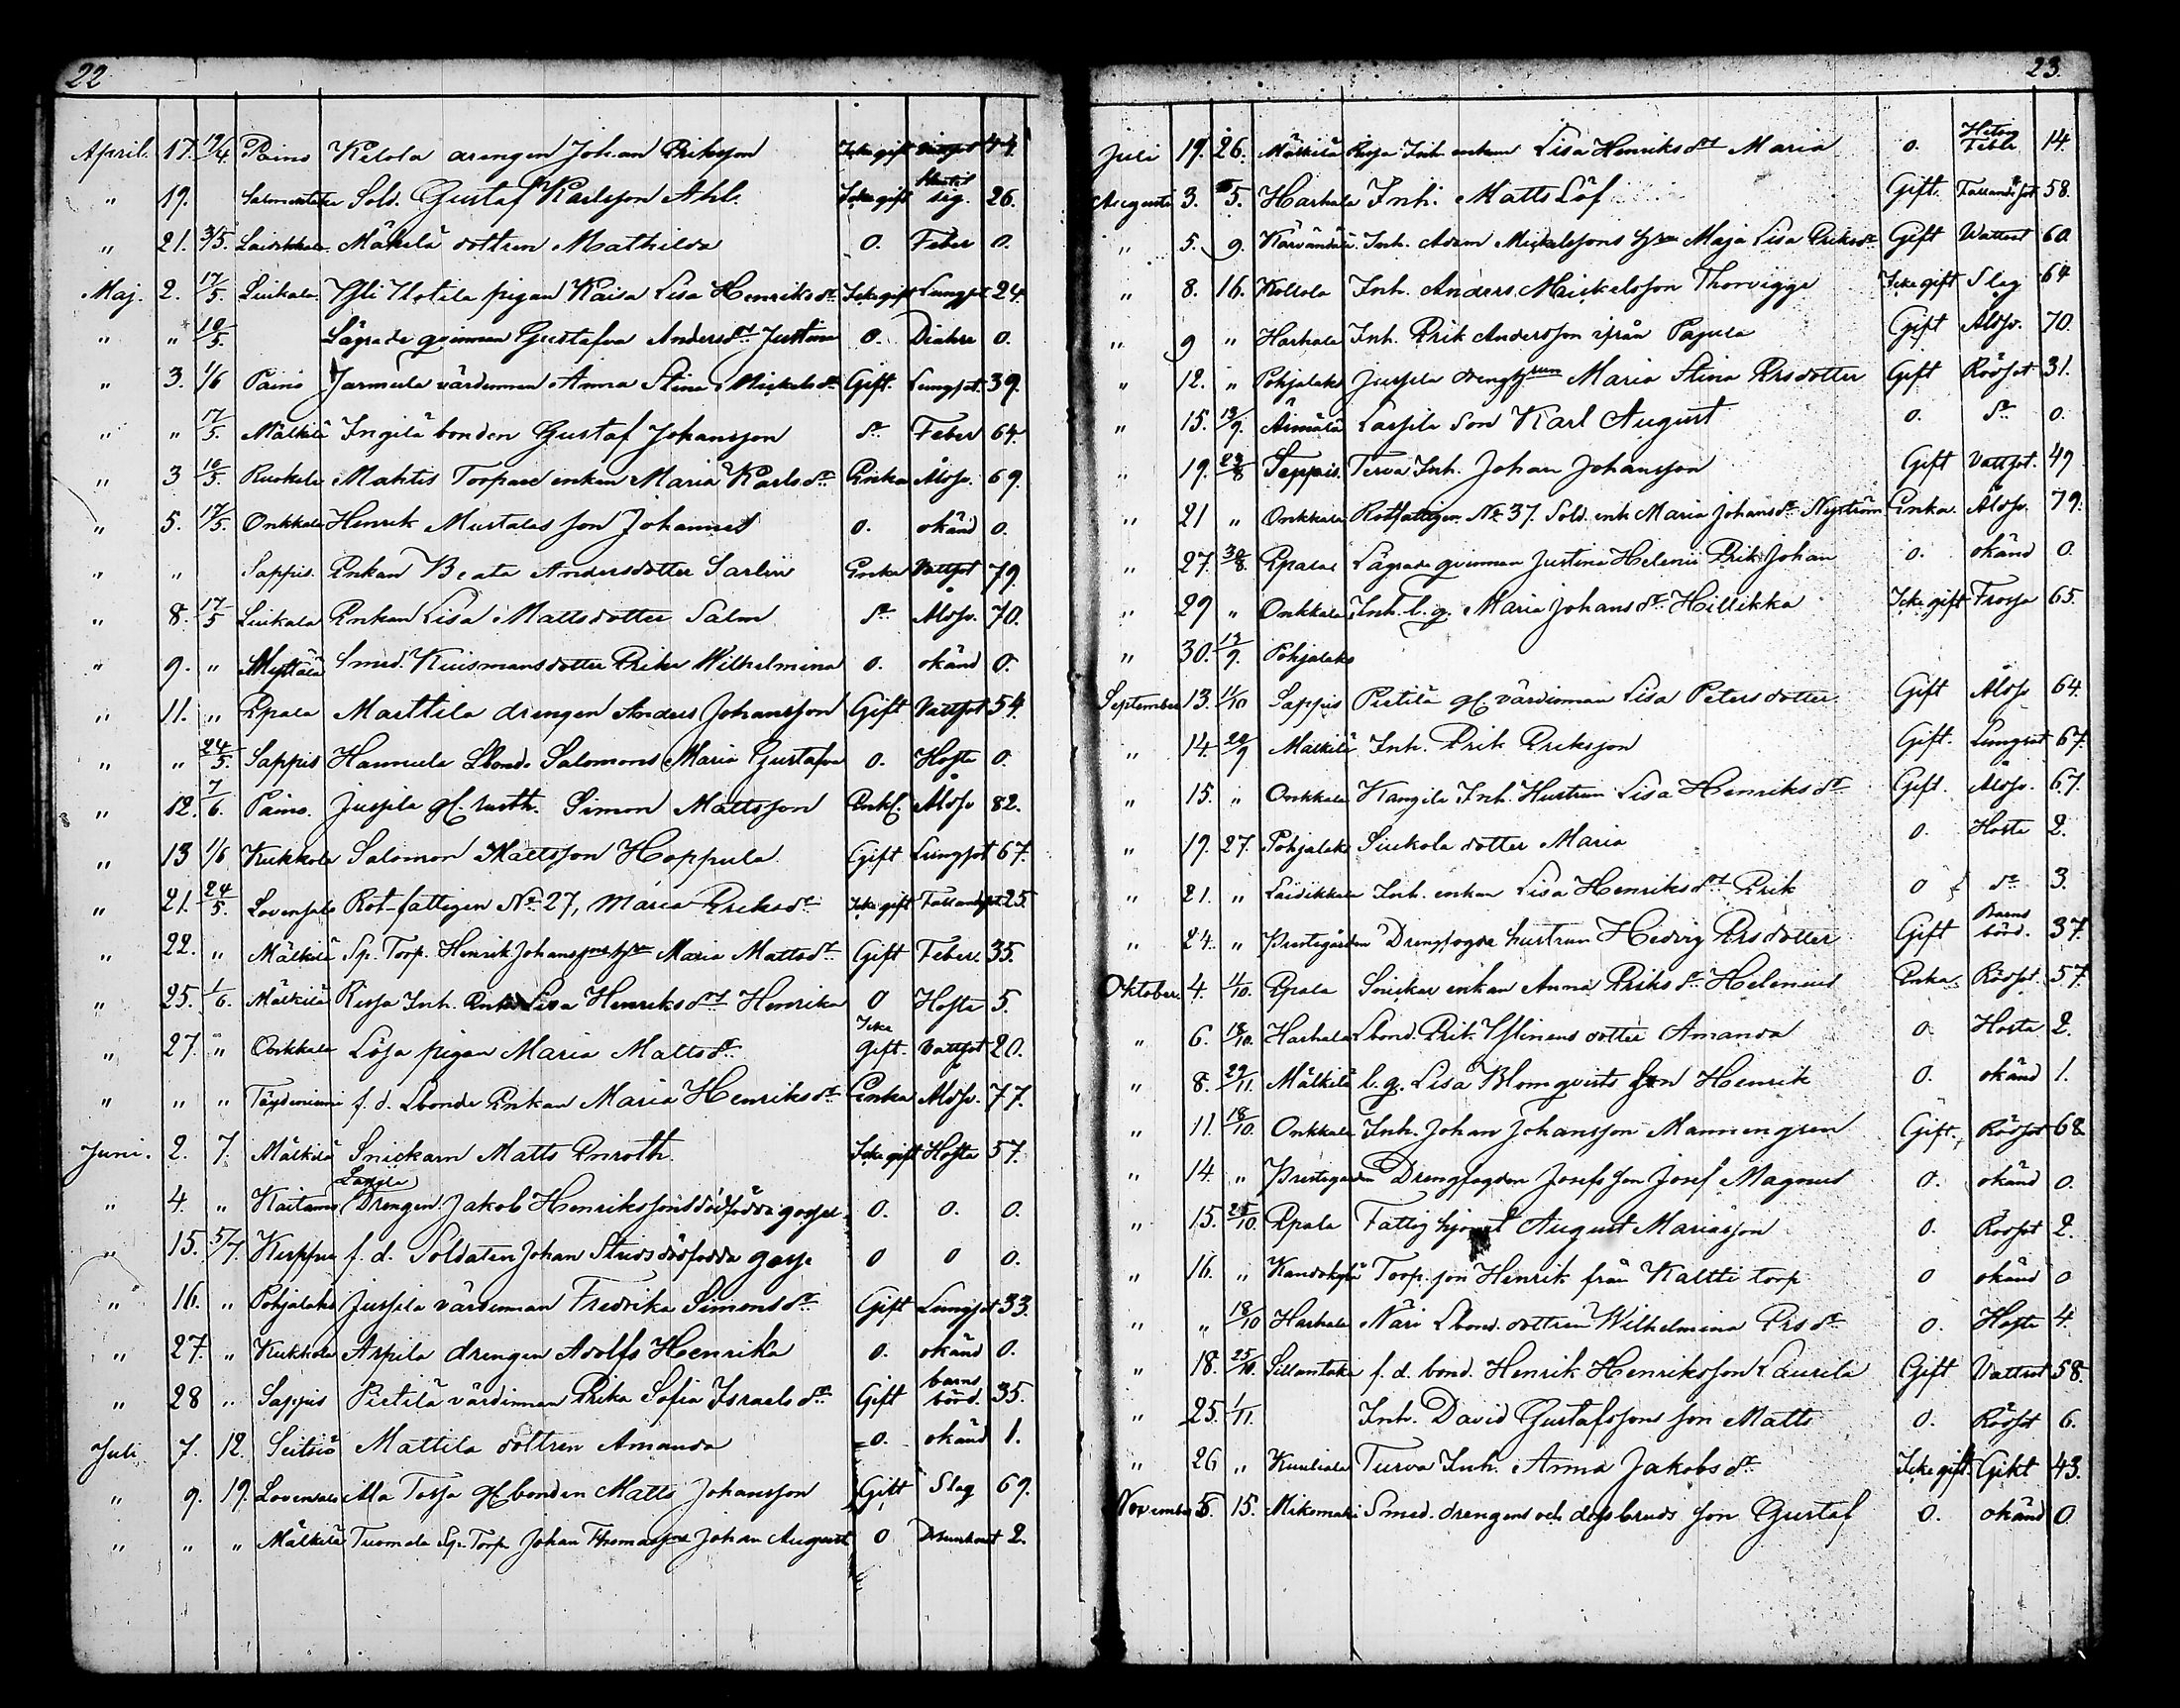 22
April. 17. 19/4 Paino Kelola drengen Johan Eriksson Icke gift 44.
" 19. Salmentaka Sold. Gustaf Karlsson Ahl. Icke gift sig. 26.
" 21. 3/5. Laidikkala Mäkilä dottren Mathilda 0. Feber 0.
Maj. 2. 17/5. Liukala Yli Uotila pigan Kaisa Lisa Henriksdr Icke gift Lungsot 24.
" " 10/5. Lägrade qvinnan Gustafva Andersdrs Justina 0. Diahre 0.
" 3. 1/6 Paino Jarmula värdinnan Anna Stina Mickelsdr Gift. Lungsot. 39.
" " 17/5. Mälkilä Ingilä bonden Gustaf Johansson dr Feber 64.
" 3 10/5. Ruokola Mahtis Torpare enkan Maria Karlsdr Enka Åldr. 69.
" 5. 17/5. Onkkala Henrik Mustalas son Johannes 0. okänd 0.
" " Sappis. Enkan Beata Andersdotter Sarlin Enka Vattsot 79.
" 8. 17/5 Liukala Enkan Lisa Mattsdotter Salm dr Åldr. 70.
" 9. " Smed. Kuismans dotter Erika Wilhelmina 0. okänd 0.
" 11. " Epala Marttila drengen Anders Johansson Gift Vattsot 54.
" " 24/5. Sappis Hannula Lbond. Salomons Maria Gustafva 0. Hosta 0.
" 12. 7/6. Paino. Jussila gl. Simon Mattsson Enkl. Åldr 82.
" 13 1/6 Kukkola Salomon Mattsson Hoppula Gift Lungsot 67.
" 21. 24/5. Lovensalo Rot-fattigen No 27, Maria Eriksdr Icke gift Fallandsot 25.
" 22. " Mälkilä Sp. Torp. Henrik Johanssons hstr Maria Mattsdr Gift Feber. 35.
" 25. 1/6. Mälkilä Rissa Inh. Enka Lisa Henriksdrs Henrika 0 Hosta 5.
" 27. " Onkkala Lösa pigan Maria Mattsdr Icke gift. Vattsot 20.
" " " f. d. Lbonde Enkan Maria Henriksdr Enka Åldr. 77.
Juni. 2. 7. Mälkilä Snickarn Matts Enroth. Icke gift Hosta 57.
" 4. " Kaitamo Lassila Drengen Jakob Henrikssons dödfödde gosse. 0. 0. 0.
" 15. 5/7. f. d. Soldaten Johan Strids dödfödda gosse 0 0 0.
" 16. " Pohjalaks Jussila värdinnan Fredrika Simonsdr Gift Lungsot 33.
" 27. " Kukkola Arpila drengen Adolfs Henrika 0. okänd 0.
" 28 " Sappis Pietilä värdinnan Erika Sofia Israelsdr Gift barns börd. 35.
Juli 7. 12. Mattila dottren Amanda 0. okänd 1.
" 9. 19. Lovensalo Ala Tossa gl bonden Matts Johansson Gift Slag 69.
" " " Mälkilä Tuomola Sp. Torp. Johan Thomassons Johan August 0 2.
23.
Juli 19. 26. Mälkilä Rissa Inh. enkan Lisa Henriksdrs Maria 0. 14.
Augusti 3. 5. Harhala Inh. Matts Löf Gift. Fallandsot 58.
" 5. 9. Inh. Adam Mickelssons hstru Maja Lisa Eriksdr Gift Wattsot 60.
" 8. 16. Kollola Inh. Anders Mickelsson Thorvigge Icke gift Slag 64
" 9 " Harhala Inh. Erik Andersson ifrån Pajula Gift Åldr. 70.
" 12. " Pohjalaks Jussila drenghstrun Maria Stina Ersdotter Gift Rödsot 31.
" 15. 13/9. Äimälä Lassila Son Karl August 0. dr 0.
" 19. 23/8 Sappis. Terva Inh. Johan Johansson Gift Vattsot. 49
" 21 " Onkkala Rotfattigen No 37. Sold. enk Maria Johansdr Nyström Enka. Åldr. 79.
" 27. 30/8. Epaala Lägrade qvinnan Justina Helenii Erik Johan 0. okänd 0.
" 29 " Onkkala Inh. l. q. Maria Johansdr Hillikka Icke gift Frossa 65.
" 30. 13/9. Pohjalaks
September 13. 11/10 Sappis Pietilä gl. värdinnan Lisa Petersdotter Gift Åldr 64.
" 14. 20/9 Mälkilä Inh. Erik Eriksson Gift. Lungsot 67.
" 15. " Onkkala Kangila Inh. Hustrun Lisa Henriksdr Gift. Åldr. 67.
" 19. 27. Pohjalaks Siukola dotter Maria 0. Hosta 2.
" 21. " Laidikkala Inh. enkan Lisa Henriksdrs Erik 0 dr 3.
" 24. " Prestegården Drengfogde hustrun Hedvig Ersdotter Gift Barns börd. 37.
Oktober. 4. 11/10. Epala Snickar enkan Anna Eriksdr Helenius Enka. Rödsot. 57.
" 6. 18/10. Harhala Lbond. Erik Yllinens dotter Amanda 0. Hosta 2.
" 8. 29/11. Mälkilä l. q. Lisa Blomqvists son Henrik 0. okänd 1.
" 11. 18/10. Onkkala Inh. Johan Johansson Manningren Gift. Rödsot 68
" 14. " Prestegården Drengfogden Josefs son Josef Magnus 0. okänd 0.
" 15. 25/10. Epala Fattig hjonet August Mariasson 0. Rödsot 2.
" 16. " Kandokylä Torp. son Henrik från Kaltti torp 0 okänd 0
" " 18/10 Harhala Näri Lbond. dottren Wilhelmina Ersdr 0. Hosta 4.
" 18. 25/10. Sillantaka f. d. bond. Henrik Henriksson Laurila Gift Vattsot 58.
" 25. 1/11. Inh. David Gustafssons son Matts 0. Rödsot 6.
" 26 " Kuuliala Turva Inh. Anna Jakobsdr Icke gift. Gikt 43.
November 5. 15. Mikomäki Smed. drengens och dess bruds son Gustaf 0. okänd 0